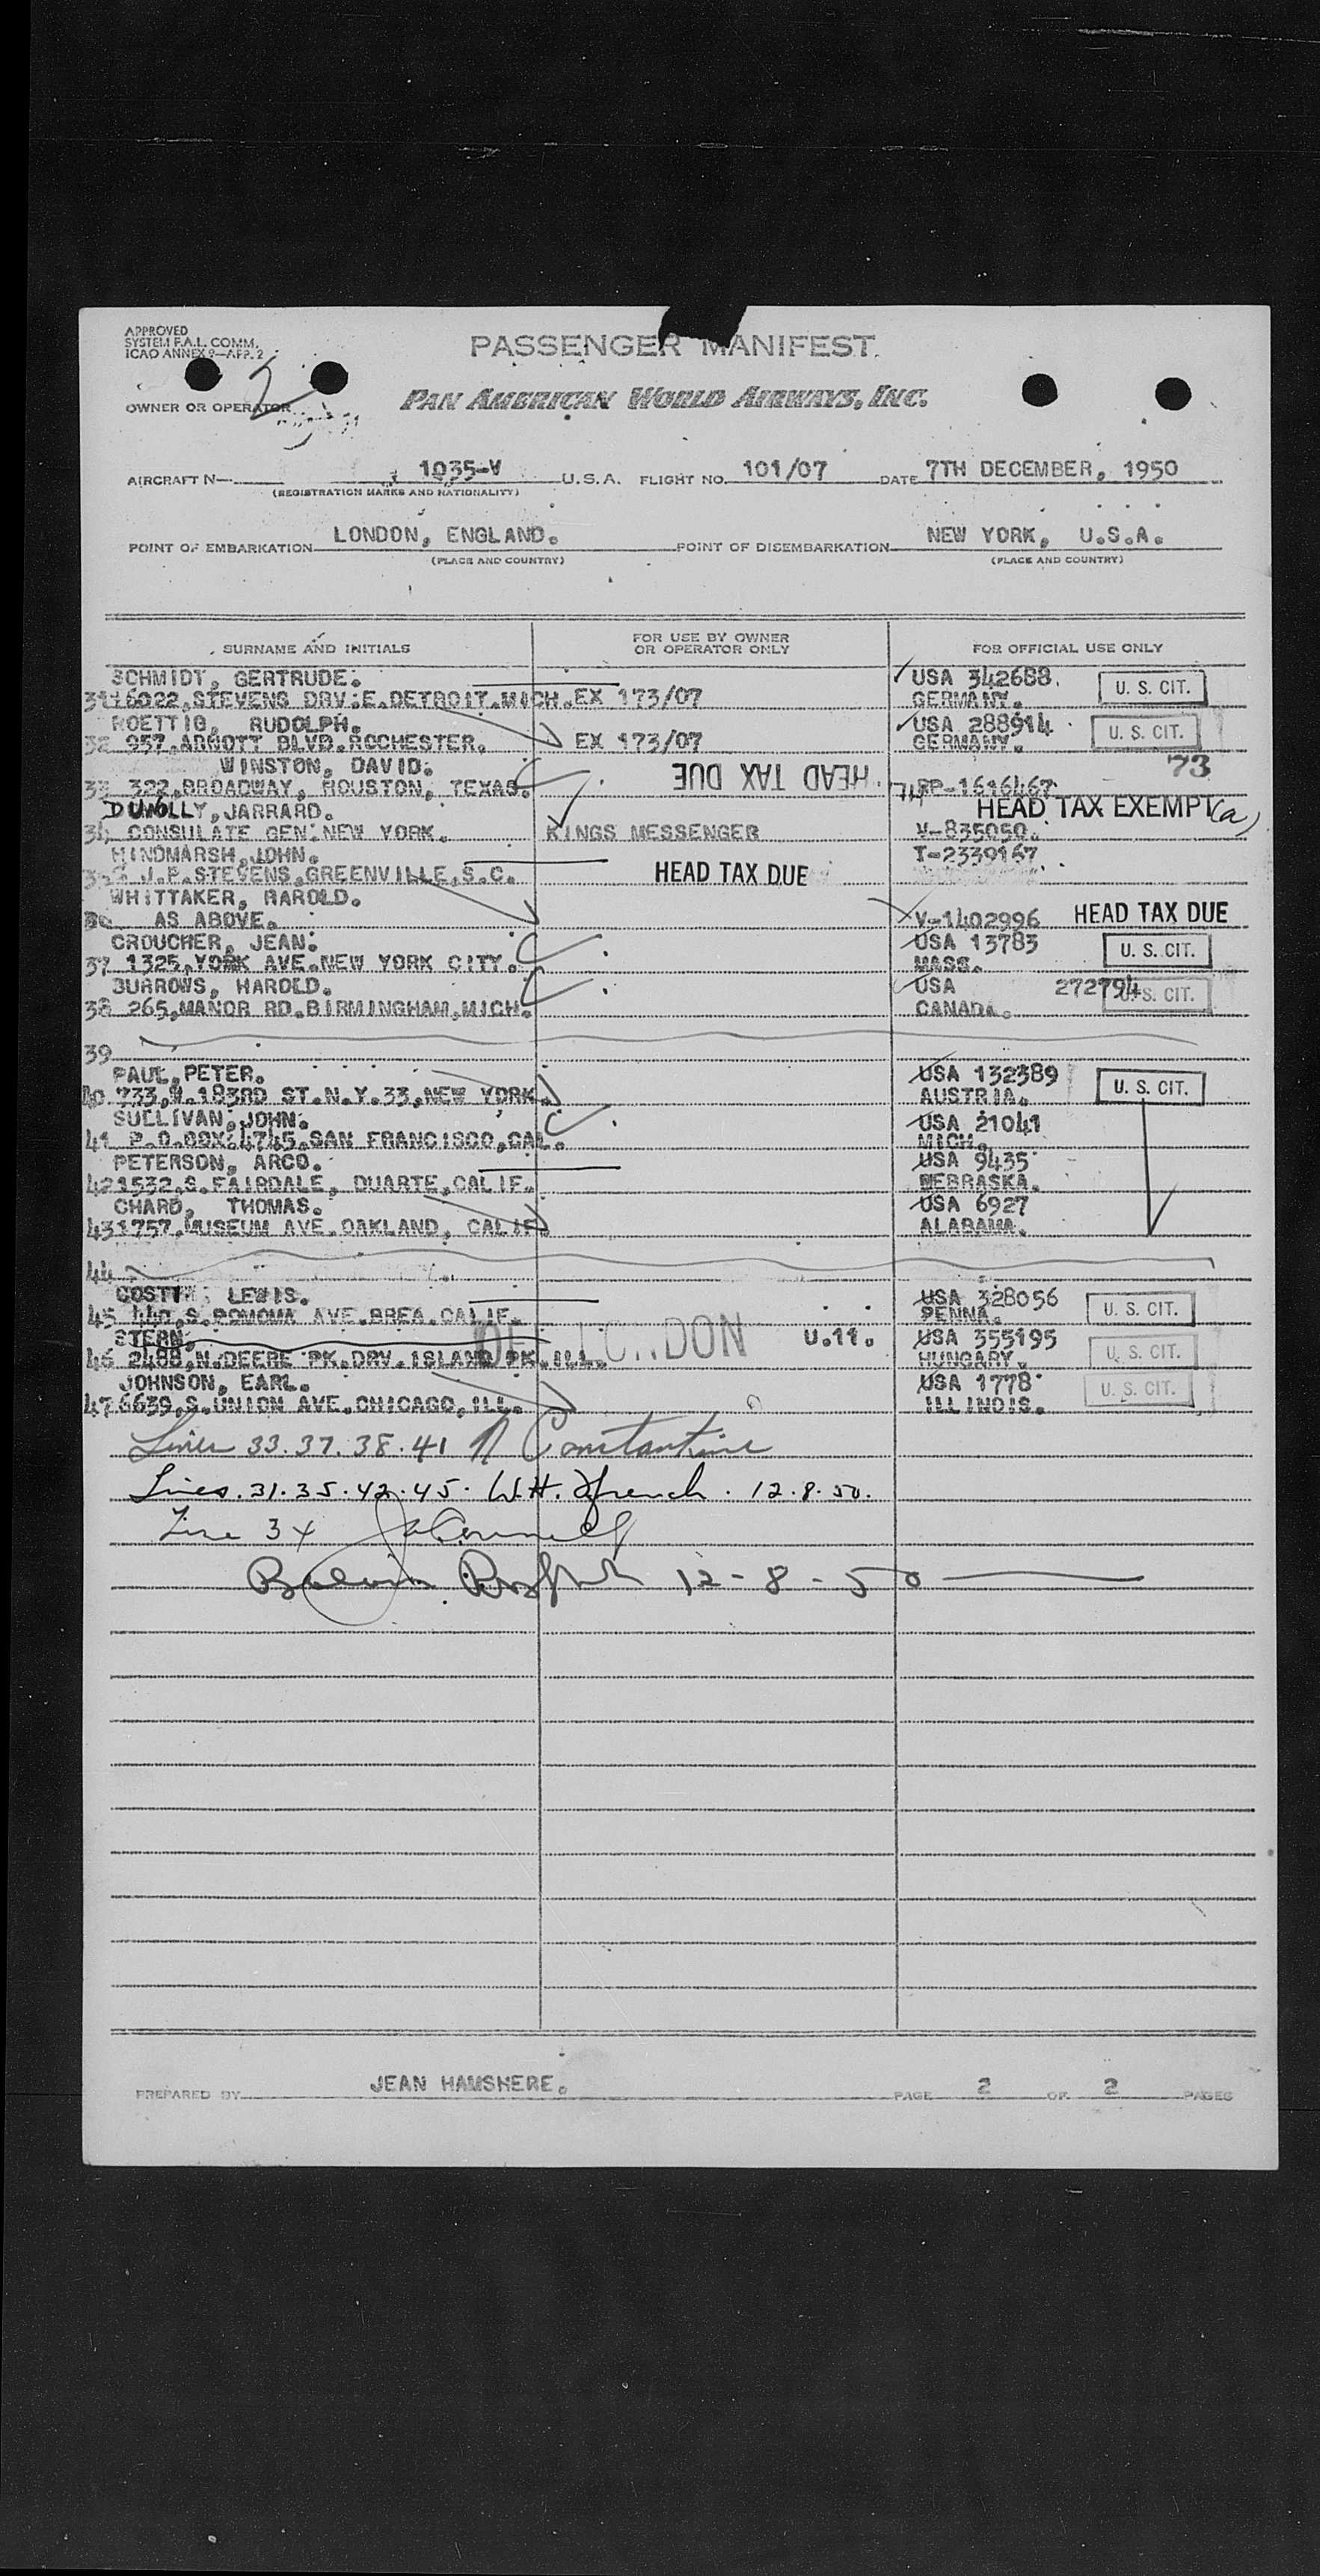 APPROVED
SYSTEM F.A.L. COMM.
ICAO ANNEX 9—APP. 2
PASSENGER MANIFEST
2
OWNER OR OPERATOR
PAN AMERICAN WORLD AIRWAYS, INC.
AIRCRAFT N— 1035-V U.S.A. FLIGHT NO. 101/07 DATE 7TH DECEMBER, 1950
(REGISTRATION MARKS AND NATIONALITY)
POINT OF EMBARKATION LONDON, ENGLAND. POINT OF DISEMBARKATION NEW YORK, U.S.A.
(PLACE AND COUNTRY) (PLACE AND COUNTRY)
SURNAME AND INITIALS FOR USE BY OWNER OR OPERATOR ONLY FOR OFFICIAL USE ONLY
SCHMIDT, GERTRUDE. USA 342688. U. S. CIT.
31 16022,STEVENS DRV.E.DETROIT.MICH.EX 173/07 GERMANY.
ROETTIG, RUDOLPH. USA 288914 U. S. CIT.
32 957,ARNOTT BLVD.ROCHESTER. EX 173/07 GERMANY.
WINSTON, DAVID. HEAD TAX DUE 73
33 322,BROADWAY, HOUSTON, TEXAS. PP-1616467
DUNOLLY, JARRARD. HEAD TAX EXEMPT (a)
34 CONSULATE GEN.NEW YORK. KINGS MESSENGER V-835050.
HINDMARSH,JOHN. T-2339167
35 J.P.STEVENS,GREENVILLE,S.C. HEAD TAX DUE
WHITTAKER, HAROLD.
36 AS ABOVE. V-1402996 HEAD TAX DUE
CROUCHER, JEAN. USA 13783 U. S. CIT.
37 1325,YORK AVE.NEW YORK CITY. MASS.
BURROWS, HAROLD. USA 272794 U. S. CIT.
38 265,MANOR RD.BIRMINGHAM,MICH. CANADA.
39
PAUL,PETER. USA 132389 U. S. CIT.
40 733,W.183RD ST.N.Y.33,NEW YORK. AUSTRIA.
SULLIVAN,JOHN. USA 21041
41 P.O.BOX.4745.SAN FRANCISCO,CAL. MICH.
PETERSON, ARCO. USA 9435
42 1532,S.FAIRDALE, DUARTE,CALIF. NEBRASKA.
CHARD, THOMAS. USA 6927
43 1757,MUSEUM AVE.OAKLAND, CALIF. ALABAMA.
44
LEWIS. USA 328056 U. S. CIT.
45 440,S.POMOMA AVE.BREA.CALIF. PENNA.
STERN, LONDON U.11. USA 355195 U. S. CIT.
46 2488,N.DEERE PK.DRV.ISLAND PK.ILL. HUNGARY.
JOHNSON, EARL. USA 1778 U. S. CIT.
47 6639,S.UNION AVE.CHICAGO,ILL. ILLINOIS.
Lines 33.37.38.41 N Constantine
Lines.31.35.42.45. W.H. French. 12.8.50.
Line 34
12-8-50
PREPARED BY JEAN HAMSHERE. PAGE 2 OF 2 PAGES